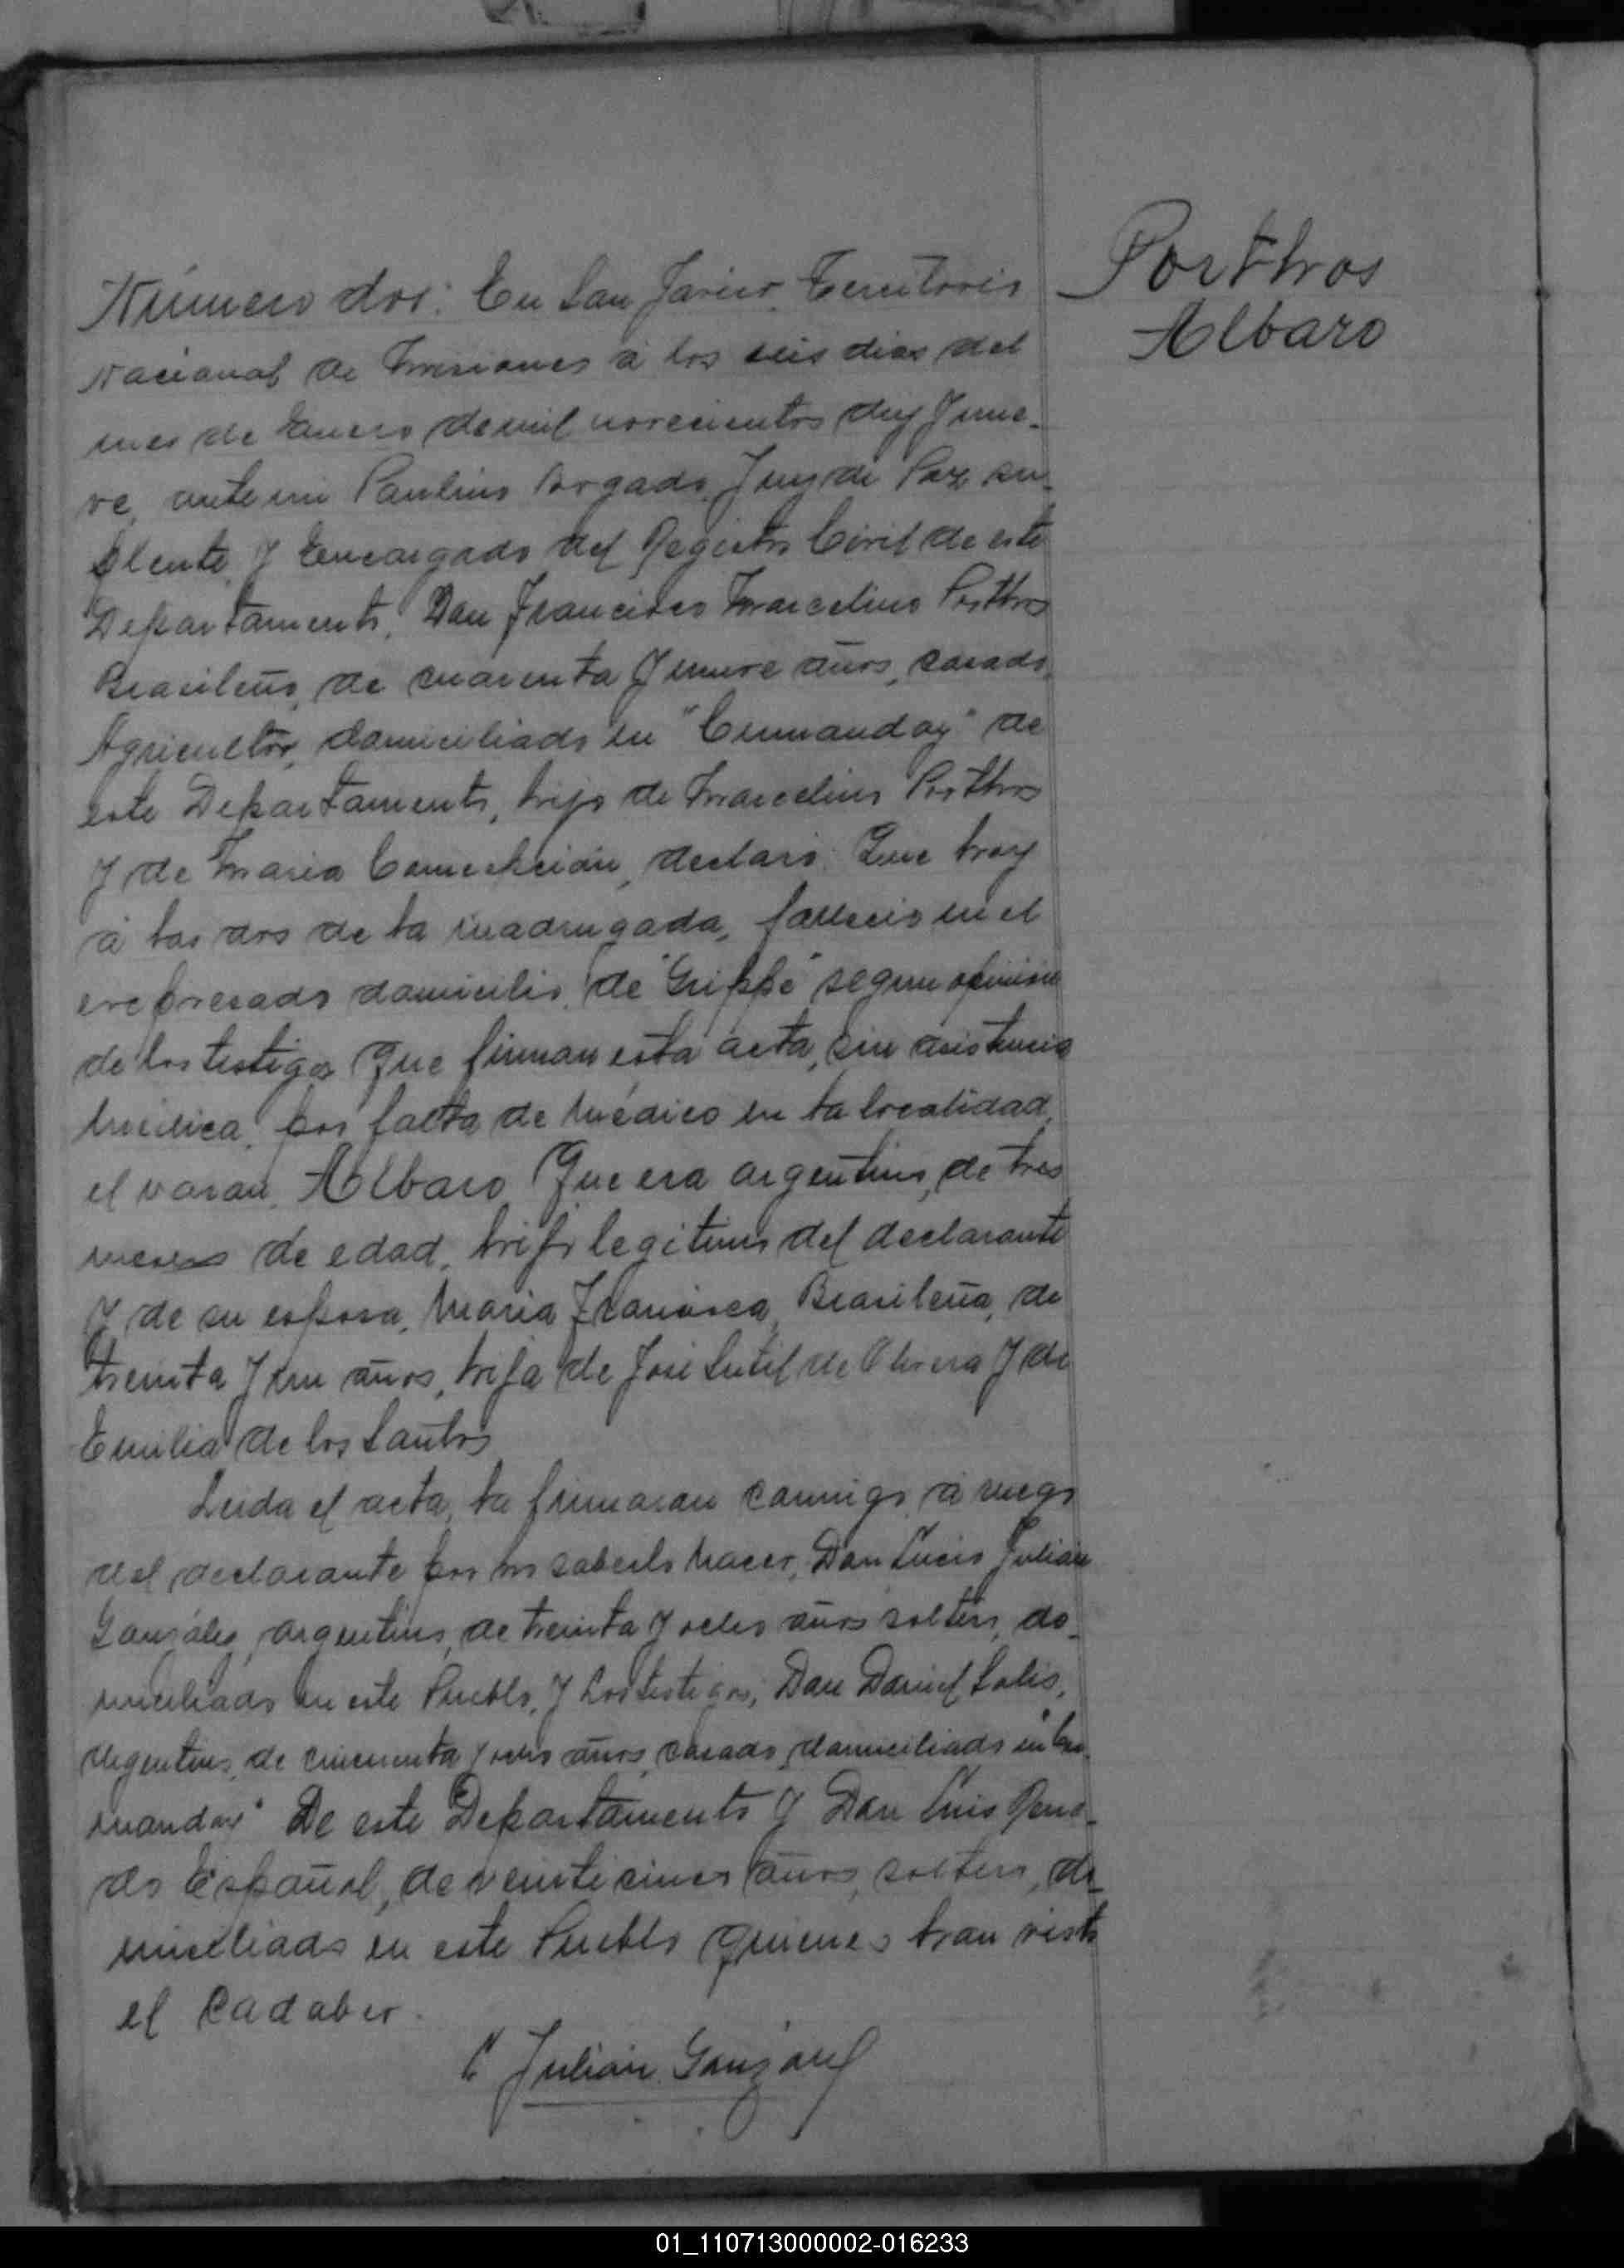 Porthos
Albaro
Número dos: En San Javier, Territorio
Nacional de Misiones a los seis dias del
mes de Enero de mil novecientos diez y nue-
ve, ante mi Paulino Bogado, Juez de Paz su-
plente, y Encargado del Registro Civil de este
Departamento, Don Francisco Marcelino Porthos
Brasileño, de cuarenta y nueve años, casado,
Agricultor, domiciliado en "Cumanday" de
este Departamento, hijo de Marcelino Porthos
y de Maria Concepción, declaró: Que hoy
á las dos de la madrugada, falleció en el
expresado domicilio, de "Grippe" segun opinion
de los testigos que firman esta acta, sin asistencia
médica, por falta de médico en la localidad,
el varon, Albaro, que era argentino, de tres
meses de edad, hijo legitimo del declarante
y de su esposa, Maria Francisca, Brasileña, de
treinta y un años, hija de José Sutil de Olivera y de
Emilia de los Santos
Leida el acta, la firmaron conmigo, a ruego
del declarante por no saberlo hacer, Don Lucio Julian
Gonzáles, argentino, de treinta y ocho años soltero, do-
miciliado en este Pueblo, y los testigos, Don Daniel Solis,
Argentino, de cincuenta y ocho años, casado, domiciliado en "Cu-
manday" De este Departamento y Don Luis
Español, de veinticinco años, soltero, do-
miciliado en este Pueblo quienes han visto
el cadaber.
L Julian Gonzalez
01_110713000002-016233